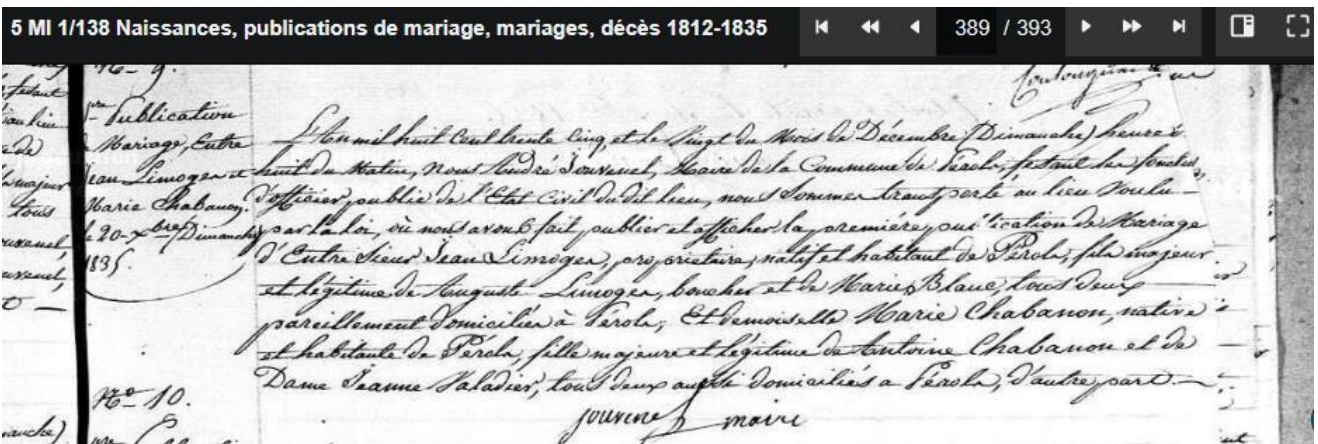 5 MI 1/138 Naissances, publications de mariage, mariages, décès 1812-1835
389 / 393
N° 9.
1re Publication
de Mariage, Entre
Jean Limoges et
Marie Chabanon.
le 20 Xbre Dimanche
1835.
L'An mil huit Cent trente cinq, et le Vingt du Mois de Décembre (Dimanche) heure
huit du Matin, Nous André Jouvenel, Maire de la Commune de Pérols, fesant les fonctions
d'officier, public de l'Etat Civil du dit lieu, nous Sommes transporté au lieu Voulu
par la loi, où nous avons fait, publier et afficher la première publication de Mariage
d'Entre Sieur Jean Limoges, proprietaire, natif et habitant de Pérols, fils majeur
et légitime de Auguste Limoges, boucher et de Marie Blanc, tous deux
pareillement domiciliés à Pérols; Et demoiselle Marie Chabanon, native
et habitante de Pérols, fille majeure et légitime de Antoine Chabanon et de
Dame Jeanne Valadier, tous deux aussi domiciliés a Pérols, d'autre part.
Jouvenel maire
N° 10.